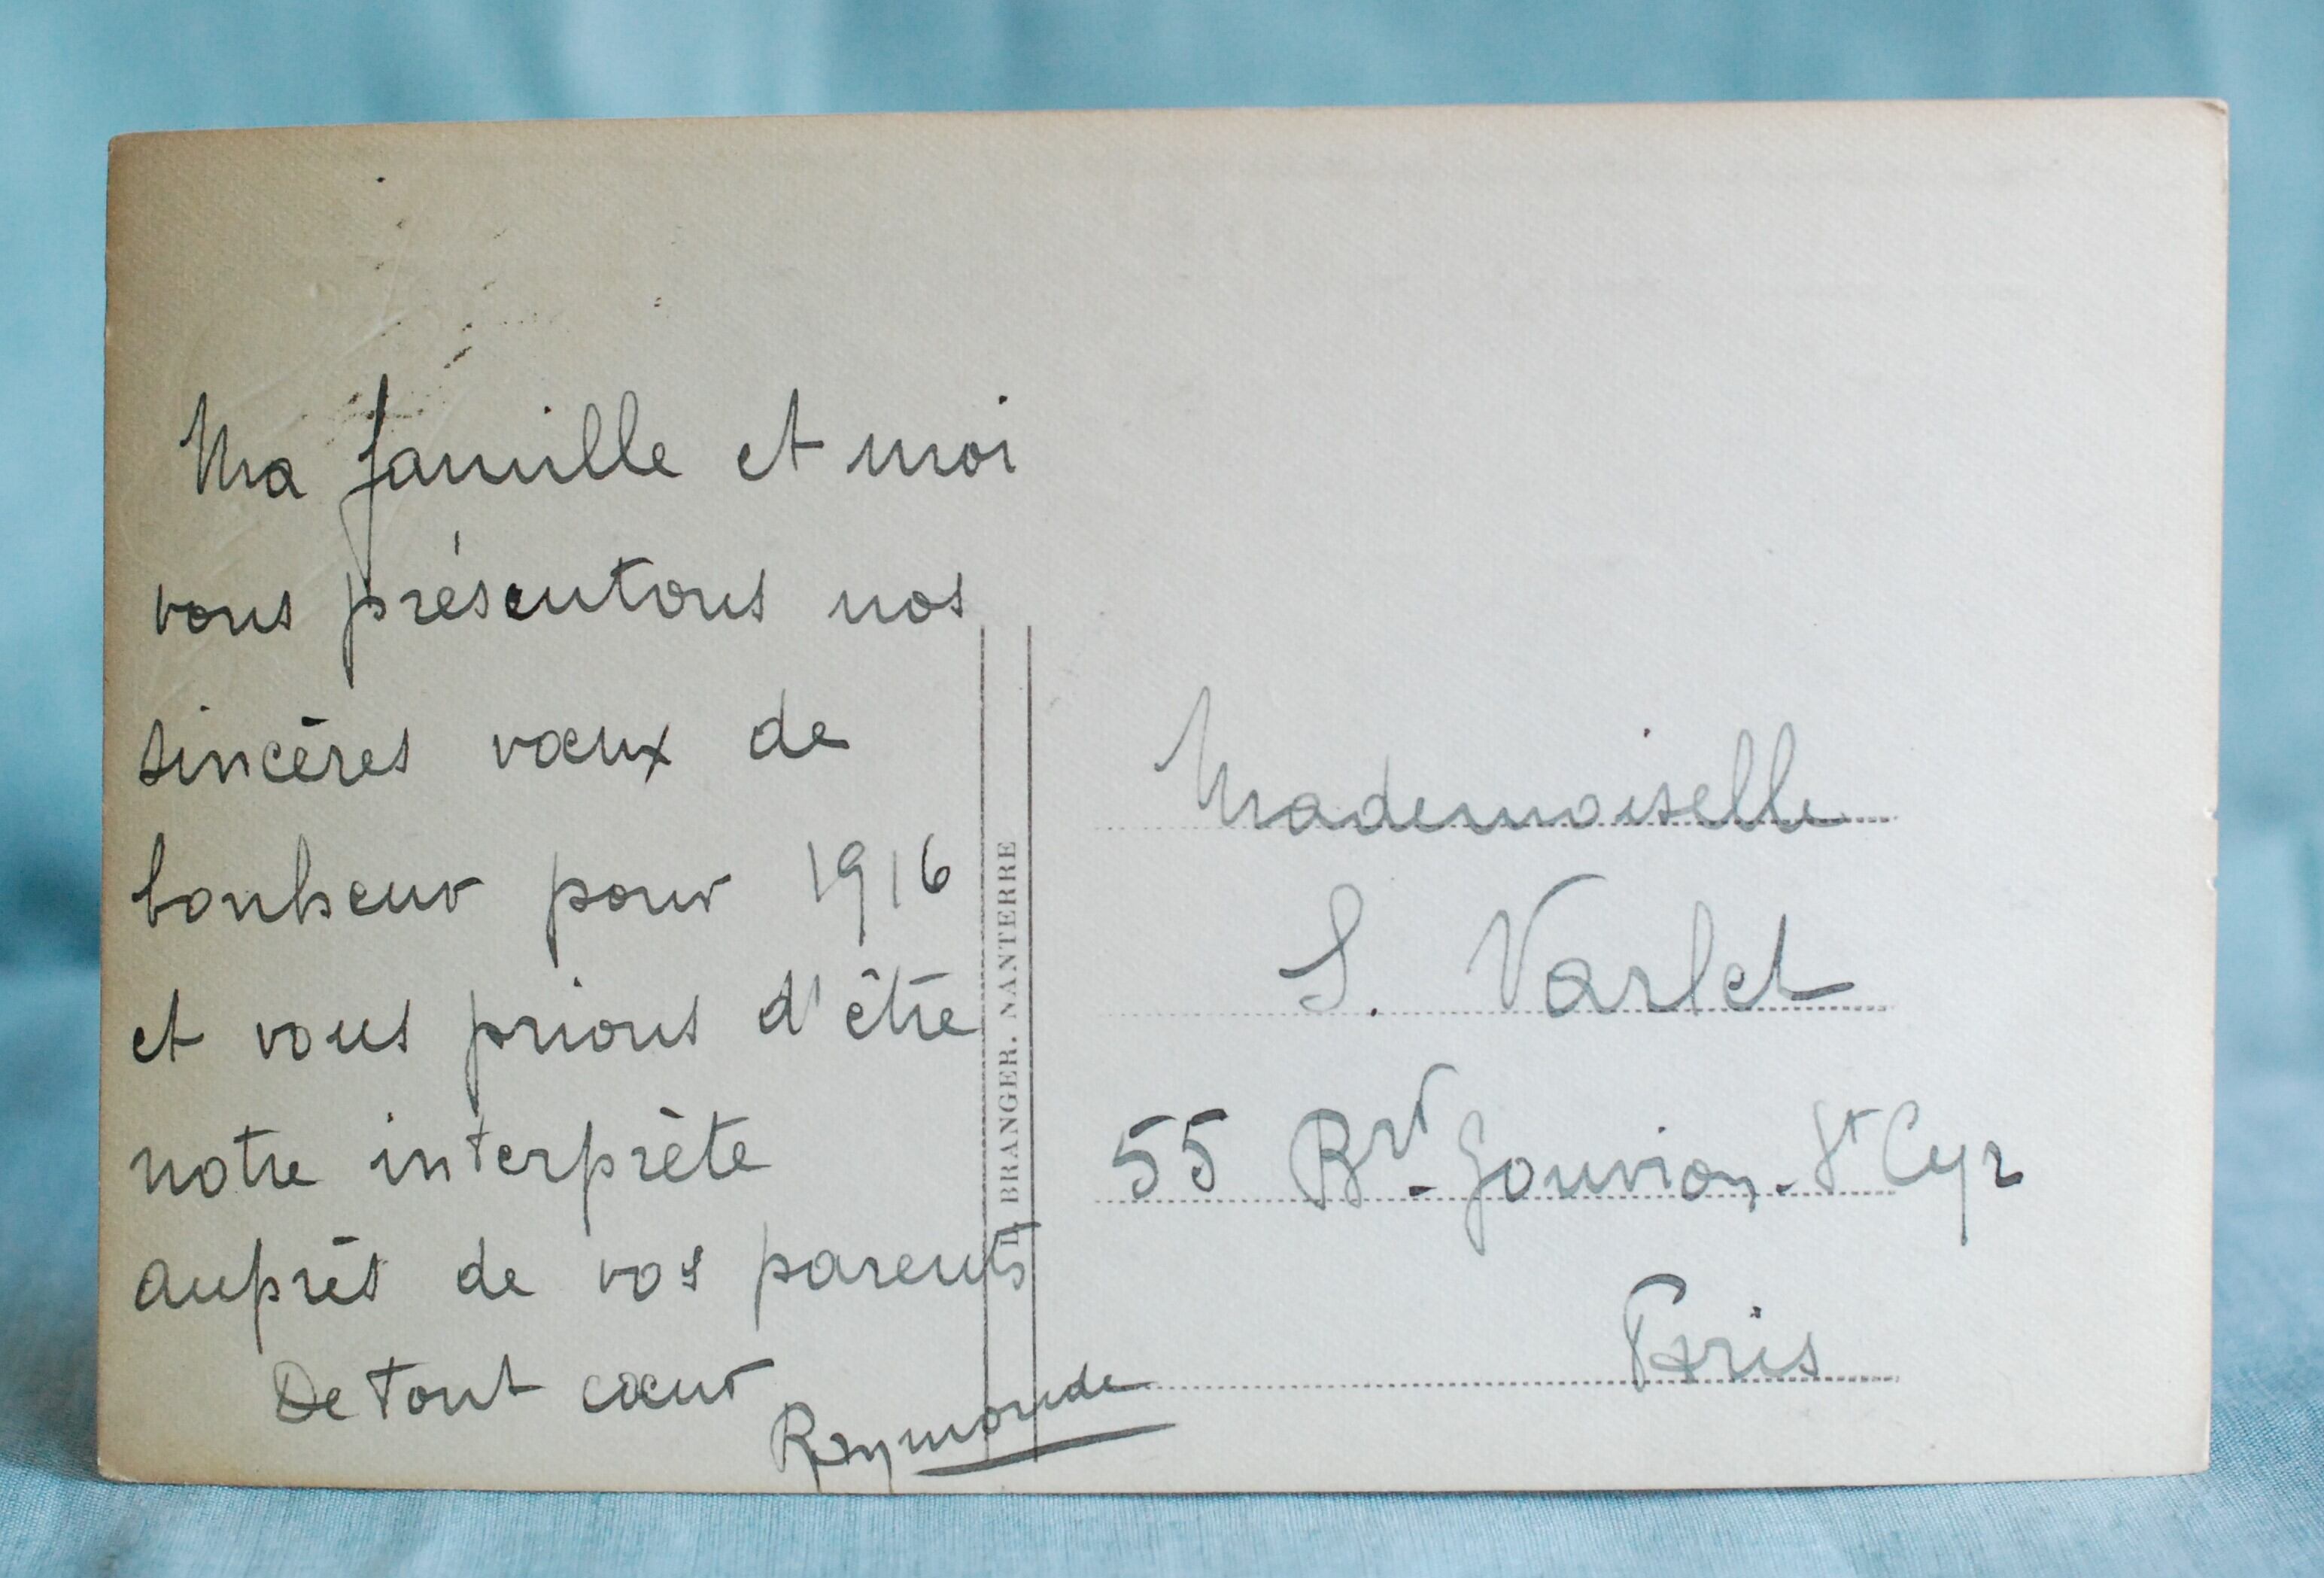 Ma famille et moi
vous présentons nos
sincères vœux de
bonheur pour 1916
et vous prions d'être
notre interprète
auprès de vos parents
De tout cœur
Raymonde
BRANGER. NANTERRE
Mademoiselle
S. Varlet
55 Bvd. Gouvion-St Cyr
Paris